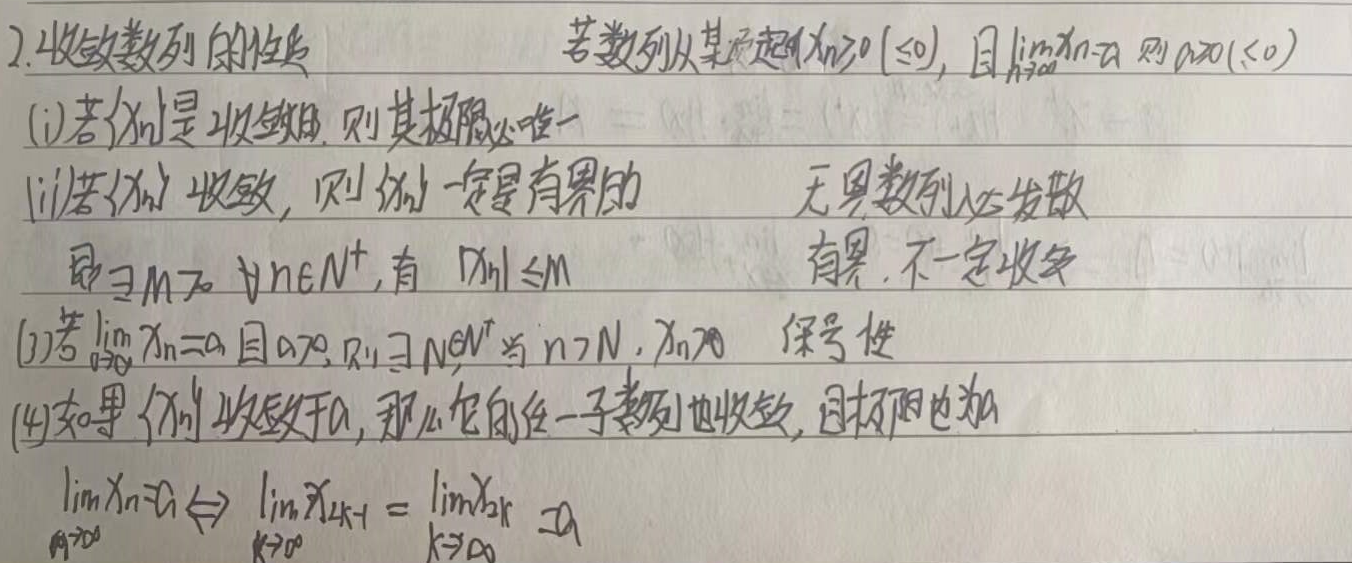 2.收敛数列的性质 若数列从某项起xn≥0(≤0),且lim n→∞ xn=a 则a≥0(≤0)
(i)若{xn}是收敛的,则其极限必唯一
(ii)若{xn}收敛,则{xn}一定是有界的 无界数列必发散
即∃M>0 ∀n∈N⁺,有 |xn|≤M 有界.不一定收敛
(3)若lim n→∞ xn=a且a>0,则∃N∈N⁺,当n>N,xn>0 保号性
(4)如果{xn}收敛于a,那么它的任一子数列也收敛,且极限也为a
lim n→∞ xn=a⇔lim k→∞ x2k-1=lim k→∞ x2k=a